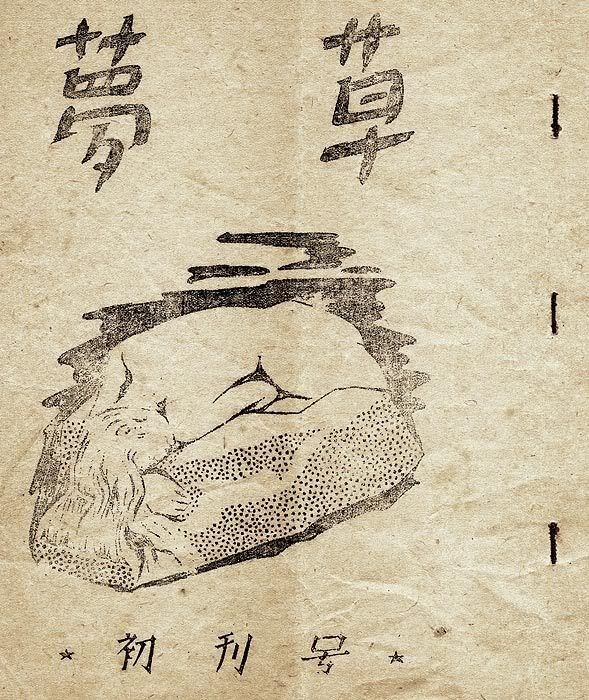 夢草
☆初刊号☆